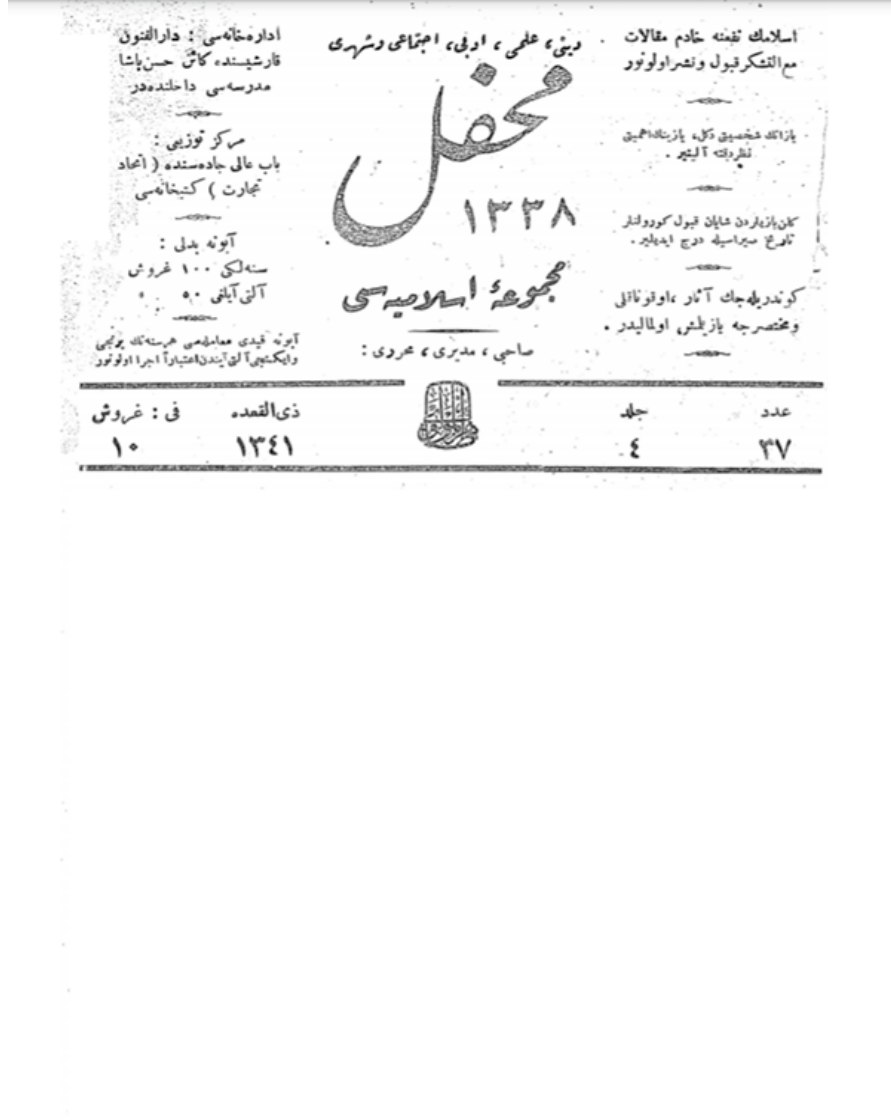 اسلامك نفعنه خادم مقالات
مع التشكر قبول و نشر اولونور
يازانك شخصيتى دكل، يازينك اهميتى
نظر دقته آلينير .
كلن يازيلردن شايان قبول كورولنلر
تاريخ صيراسيله درج ايديلير .
كوندريله‌جك آثار ، اوقوناقلى
و مختصرجه يازيلمش اولماليدر .
دينى ، علمى ، ادبى ، اجتماعى و شهرى
محفل
١٣٣٨
مجموعهٔ اسلاميه‌سى
صاحبى ، مديرى ، محررى :
اداره‌خانه‌سى : دارالفنون
قارشيسنده كائن حسن پاشا
مدرسه‌سى داخلنده‌در
مركز توزيعى :
باب عالى جاده‌سنده ( اتحاد
تجارت ) كتبخانه‌سى
آبونه بدلى :
سنه‌لكى ١٠٠ غروش
آلتى آيلغى ٥٠ »
آبونه قيدى معامله‌سى هر سنه‌نك برنجى
و ايكنجى آلتى آيندن اعتباراً اجرا اولونور
عدد
٣٧
جلد
٤
ذى القعده
١٣٤١
فى : غروش
١٠